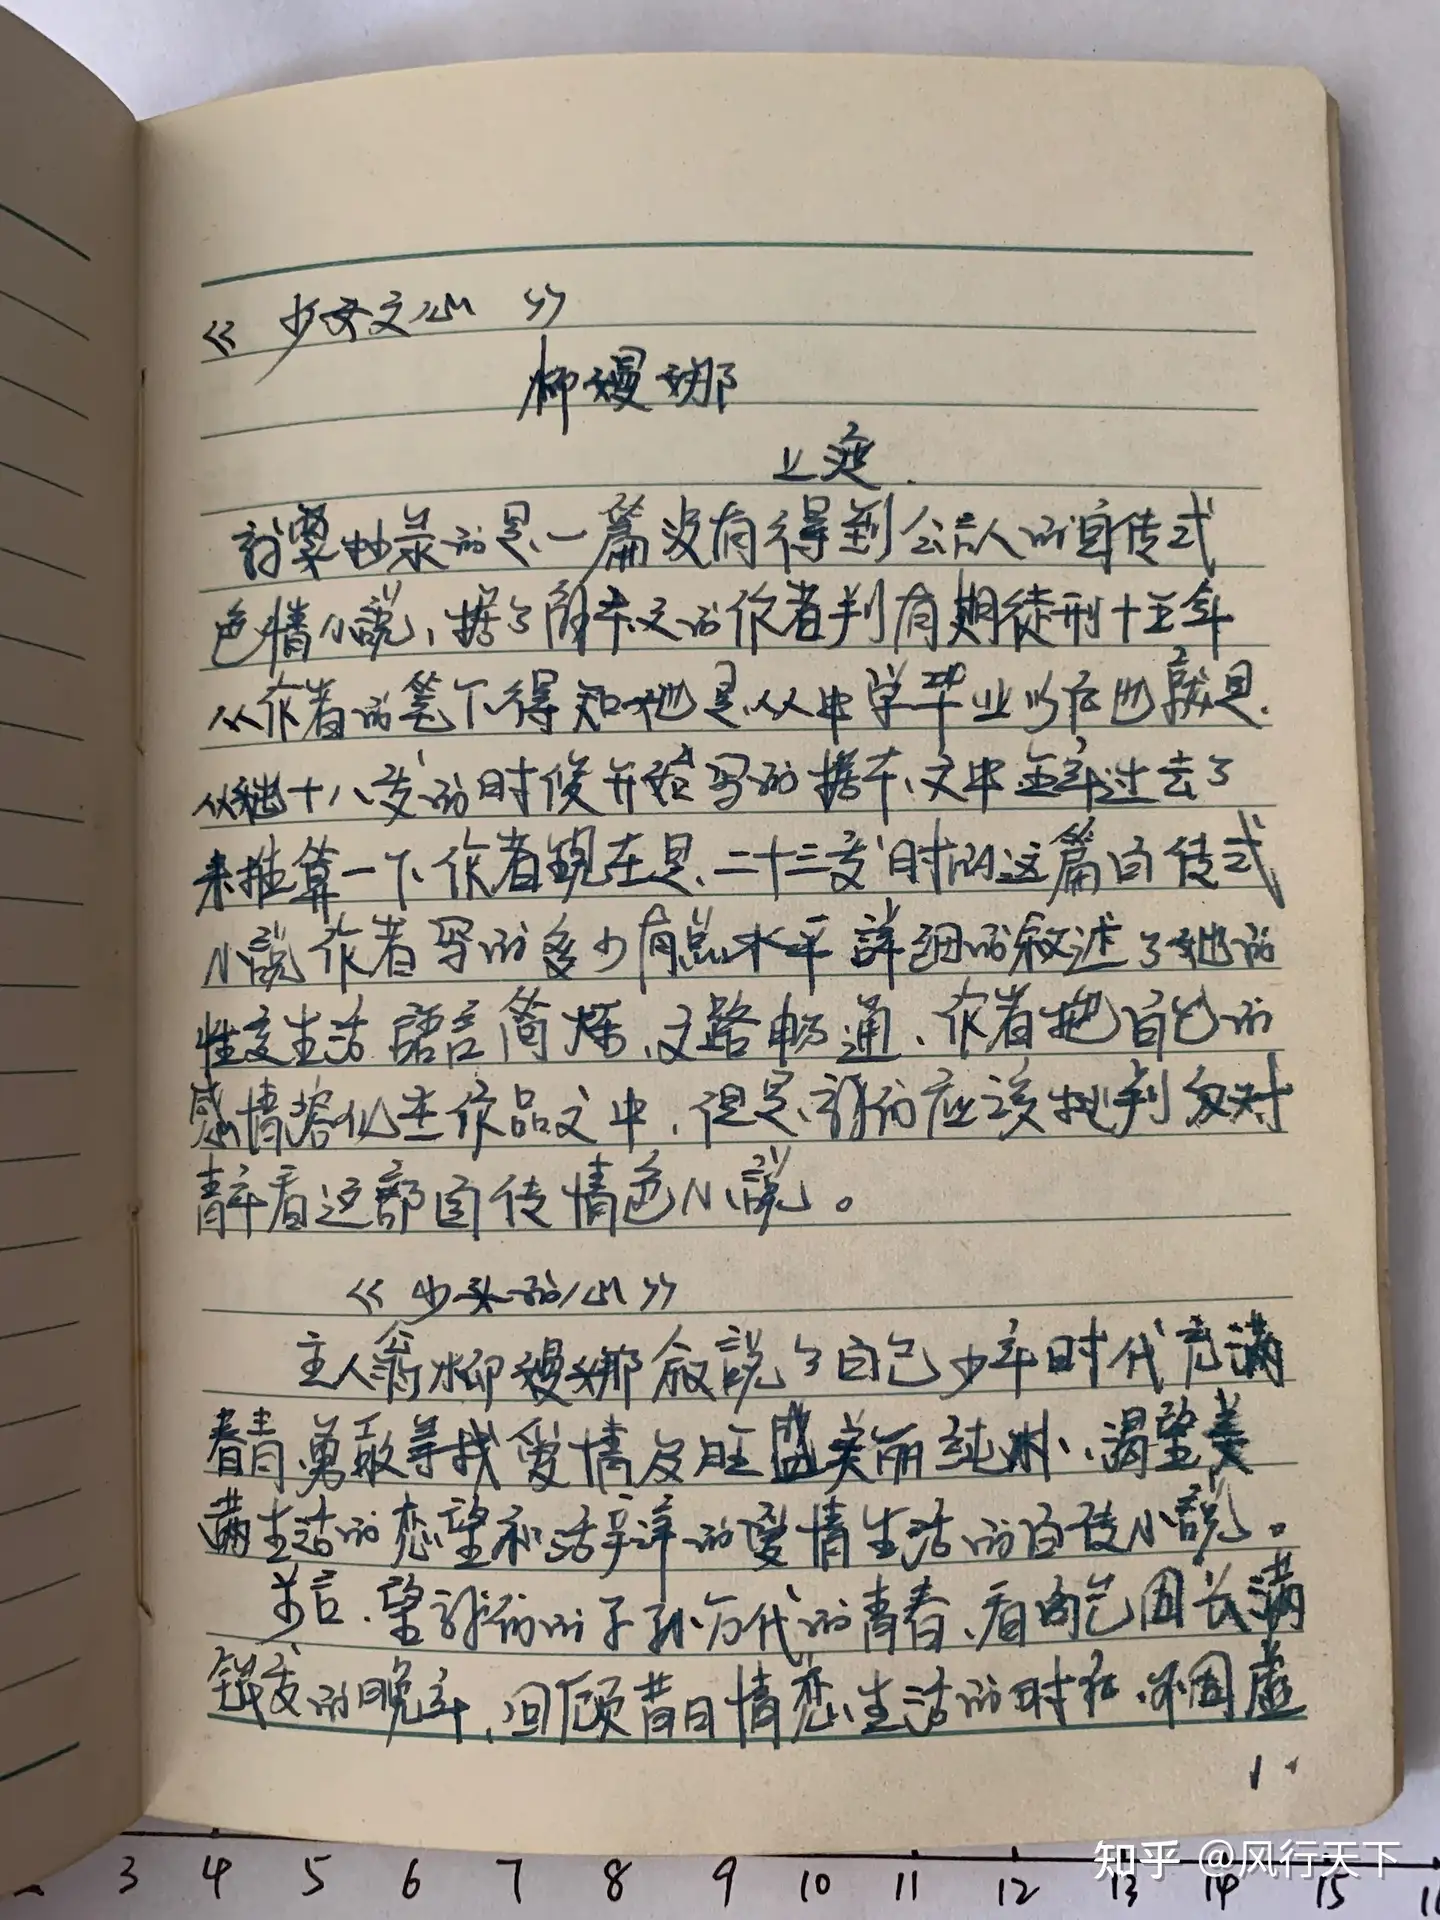 《少女之心》
柳嫚娜
上
抄录的是一篇没有得到公认的自传式
色情小說、据了本文的作者判有期徒刑十五年
从作者的笔下得知她是从中学毕业以后也就是
从她十八岁的时候开始写的据本文中年过去了
来推算一下作者现在是二十三岁时的这篇自传式
小說作者写的多少有点水平 詳细的叙述了她的
性交生活 語言简 、文路畅通、作者把自己的
感情溶化在作品文中，但是、我们应该批判反对
青年看这部自传情色小說。
《少女的心》
主人翁柳嫚娜叙說了自己少年时代充满
青春勇敢寻找爱情及旺盛美丽纯 、渴望美
满生活的恋望和 的爱情生活的自传小說。
言、望我们的子孙万代的青春、看 长满
的晚年，回顾昔日情恋生活的时 、不因虚
1
3 4 5 6 7 8 9 10 11 12 13 14 15
知乎 @风行天下